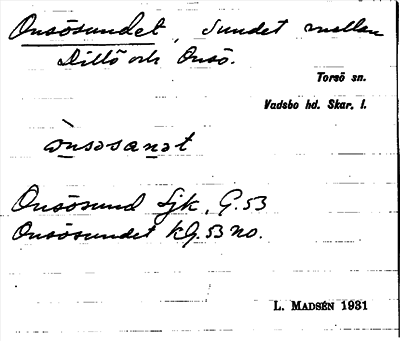 Onsösundet, sundet mellan
Dillö och Onsö.
Torsö sn.
Vadsbo hd. Skar. l.
ònsəsanət
Onsösund Sjk. G. 53
Onsösundet kG. 53 NO.
L. MADSÉN 1931